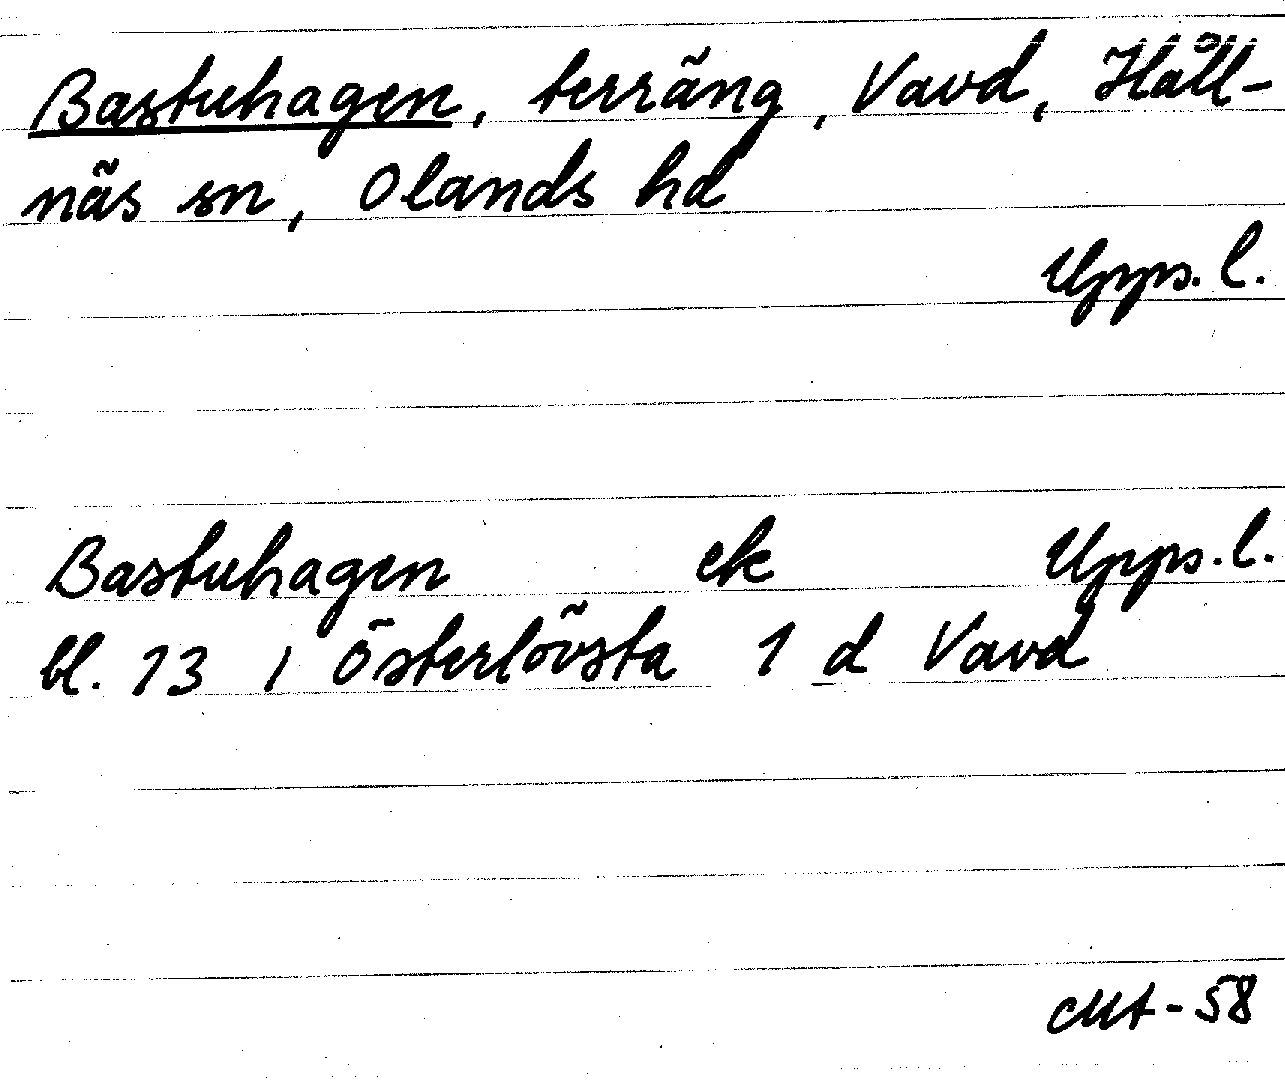 Bastuhagen, terräng, Vavd, Håll-
näs sn, Olands hd
Upps. l.
Bastuhagen ek Upps. l.
bl. 13 i Österlövsta 1 d Vavd
-58